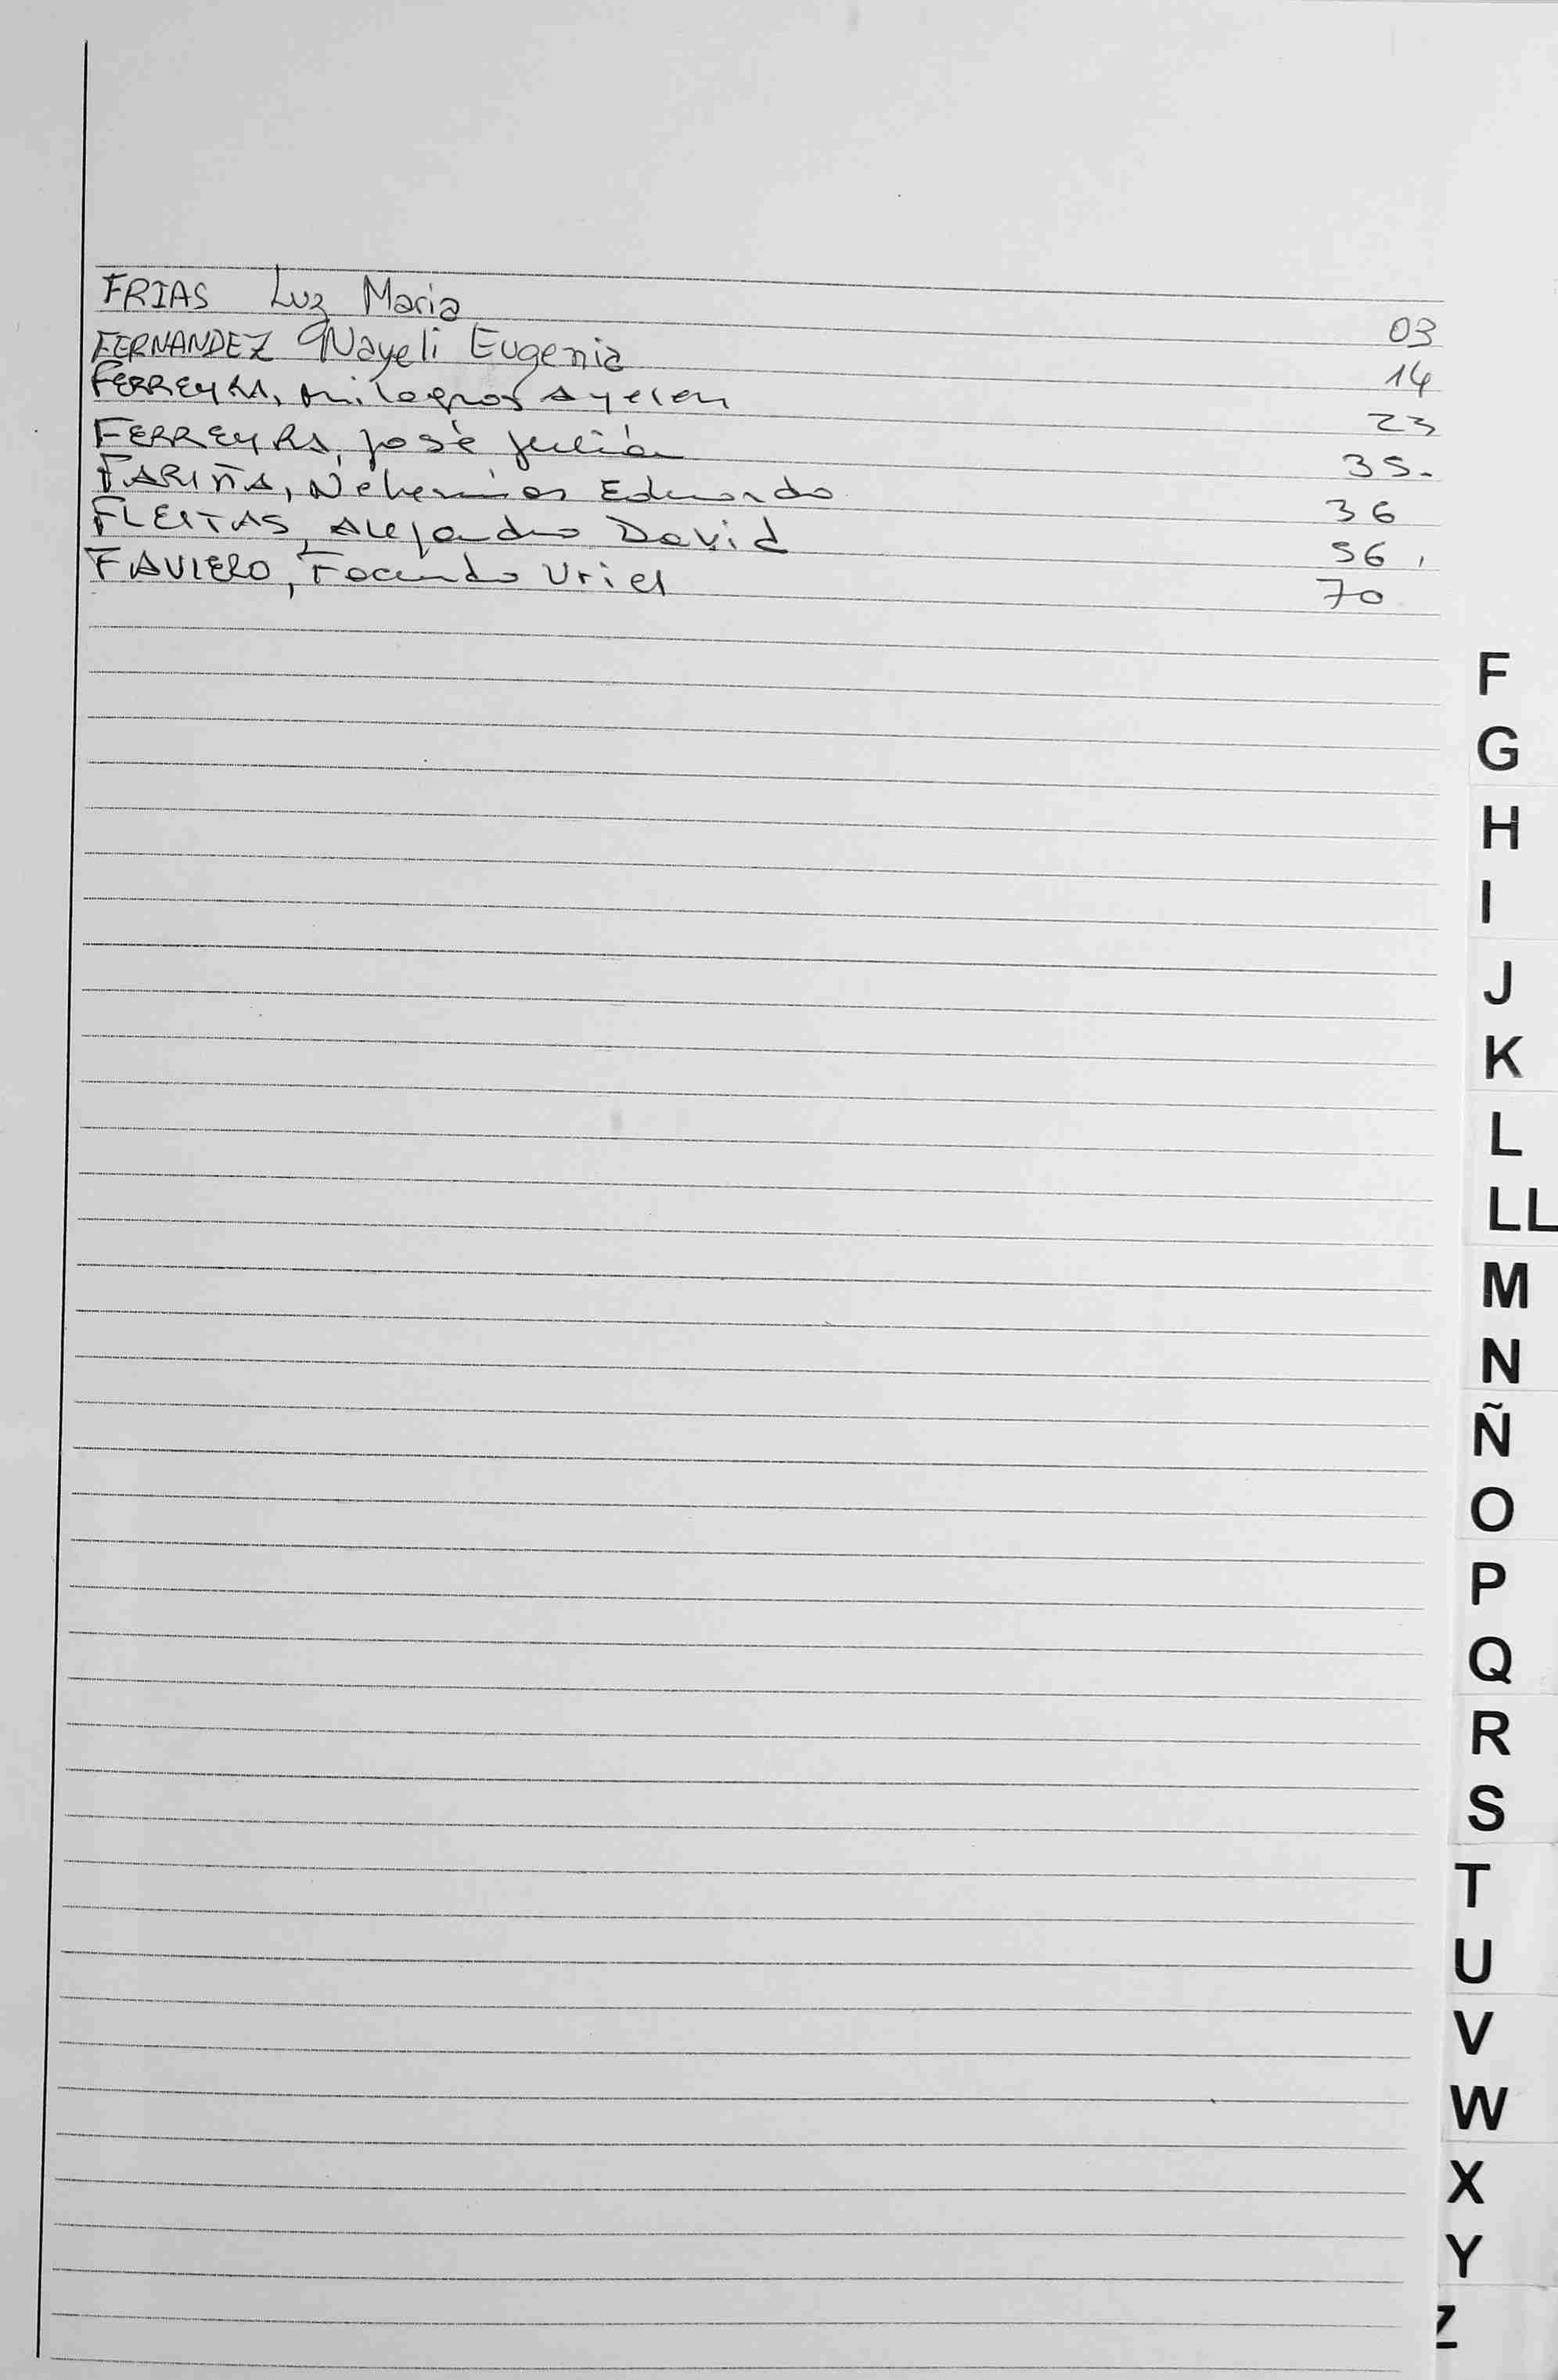 FRIAS Luz Maria 03
FERNANDEZ Nayeli Eugenia 14
FERREYRA, Milagros Ayelen 23
FERREYRA, José Julián 35.
FARIÑA, Nehemias Eduardo 36
FLEITAS, Alejandro David 56,
FAVIERO, Facundo Uriel 70
F
G
H
I
J
K
L
LL
M
N
Ñ
O
P
Q
R
S
T
U
V
W
X
Y
Z